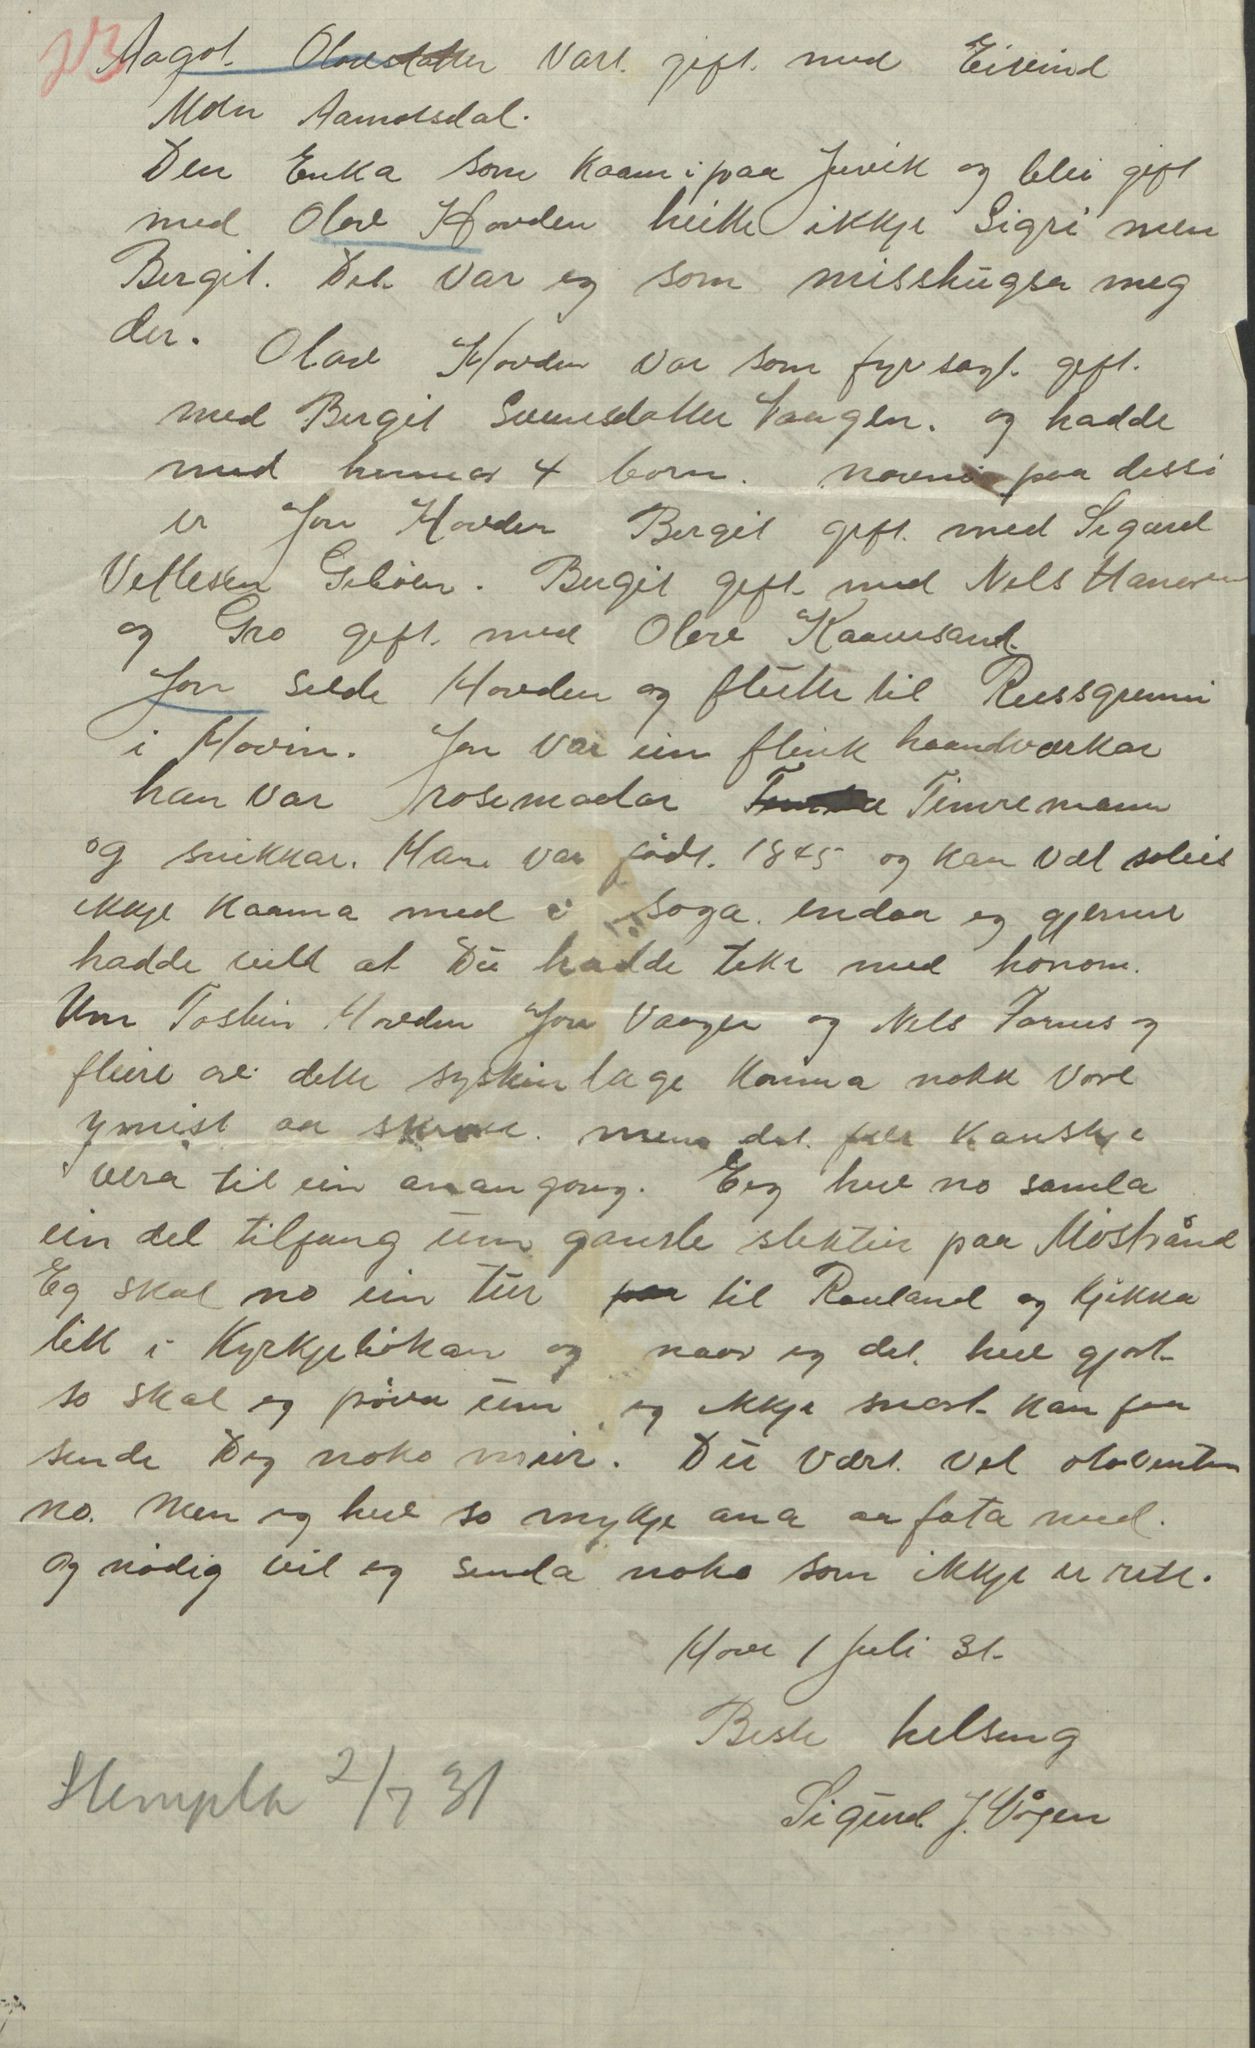 Aagot Olavsdatter vart gift med Eivind
Moen Aamotsdal.
Den Enka som kaam i paa Juvik og blei gift
med Olav Hovden heitte ikkje Sigri men
Bergit. Det var eg som misshugsa meg
der.
Olav Hovden var som fyr sagt gift
med Bergit Sveinsdatter Vaagen. og hadde
med henna 4 born. navni paa dessi
er Jon Hovden Bergit gift med Sigurd
Vetlesen Gibøen. Bergit gift med Nils
og Gro gift med Olav Kaavesand.
Jon selde Hovden og flutte til Russgrunn
i Hovin. Jon var ein flink haandværkar
han var rosemaalar Timremann
og snikkar. Han var født 1845 og kan væl soleis
ikkje kaama med i soga. endaa eg gjerne
hadde vilt at Du hadde teke med honom.
Um Tostein Hovden Jon Vaagen og Nils Farnes og
fleire av dette syskinlage kunna nokk vore
ymist aa skrive. men det fær kanskje
vera til ein anan gong. Eeg heve no samla
ein del tilfang um gamle slektir paa Møstrånd
Eg skal no ein tur til Rauland og kjikka
litt i Kyrkjebøkan og naar eg det heve gjort
so skal eg prøva um eg ikkje snart kan faa
sende Deg noko meir. Du vært vel olaventen
no. Men eg heve so mykje ana aa fata med.
og nødig vil eg senda noko som ikkje er rett.
Hove 1 Juli 31.
Beste helsing
Sigurd J. Vågen
Stempla 2/7 31